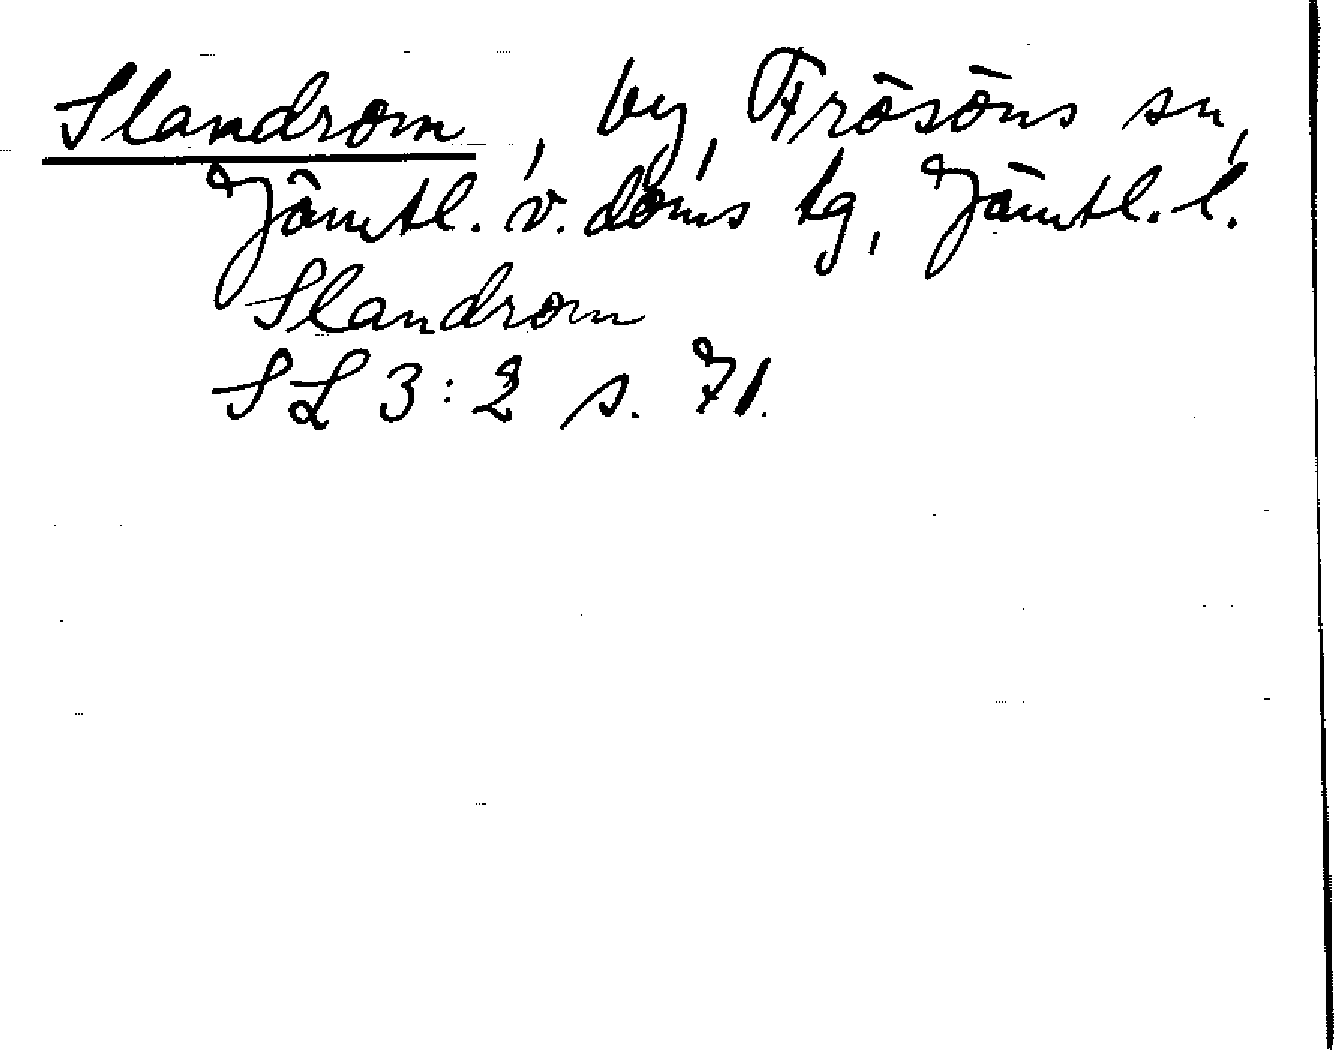 Slandrom, by, Frösöns sn,
Jämtl. v. doms tg, Jämtl. l.
Slandrom
SL 3:2 s. 71.